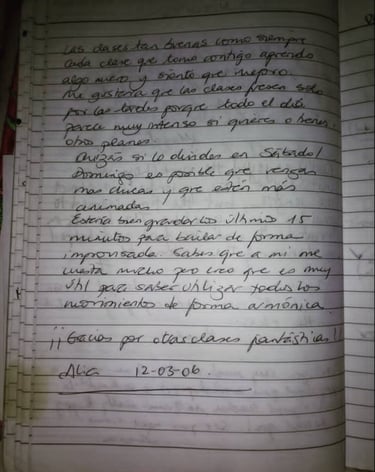 Las clases tan buenas como siempre
Cada clase que tomo contigo aprendo
algo nuevo y siento que mejoro.
Me gustaría que las clases fuesen solo
por las tardes porque todo el día
parece muy intenso si quieres o tienes
otros planes.
Quizás si lo divides en Sábado/
Domingo es posible que vengan
mas chicas y que estén más
animadas
Estaría bien guardar los últimos 15
minutos para bailar de forma
improvisada. Sabes que a mi me
cuesta mucho pero creo que es muy
útil para saber utilizar todos los
movimientos de forma armónica.
¡¡Gracias por otras clases fantásticas!!
12-03-06.